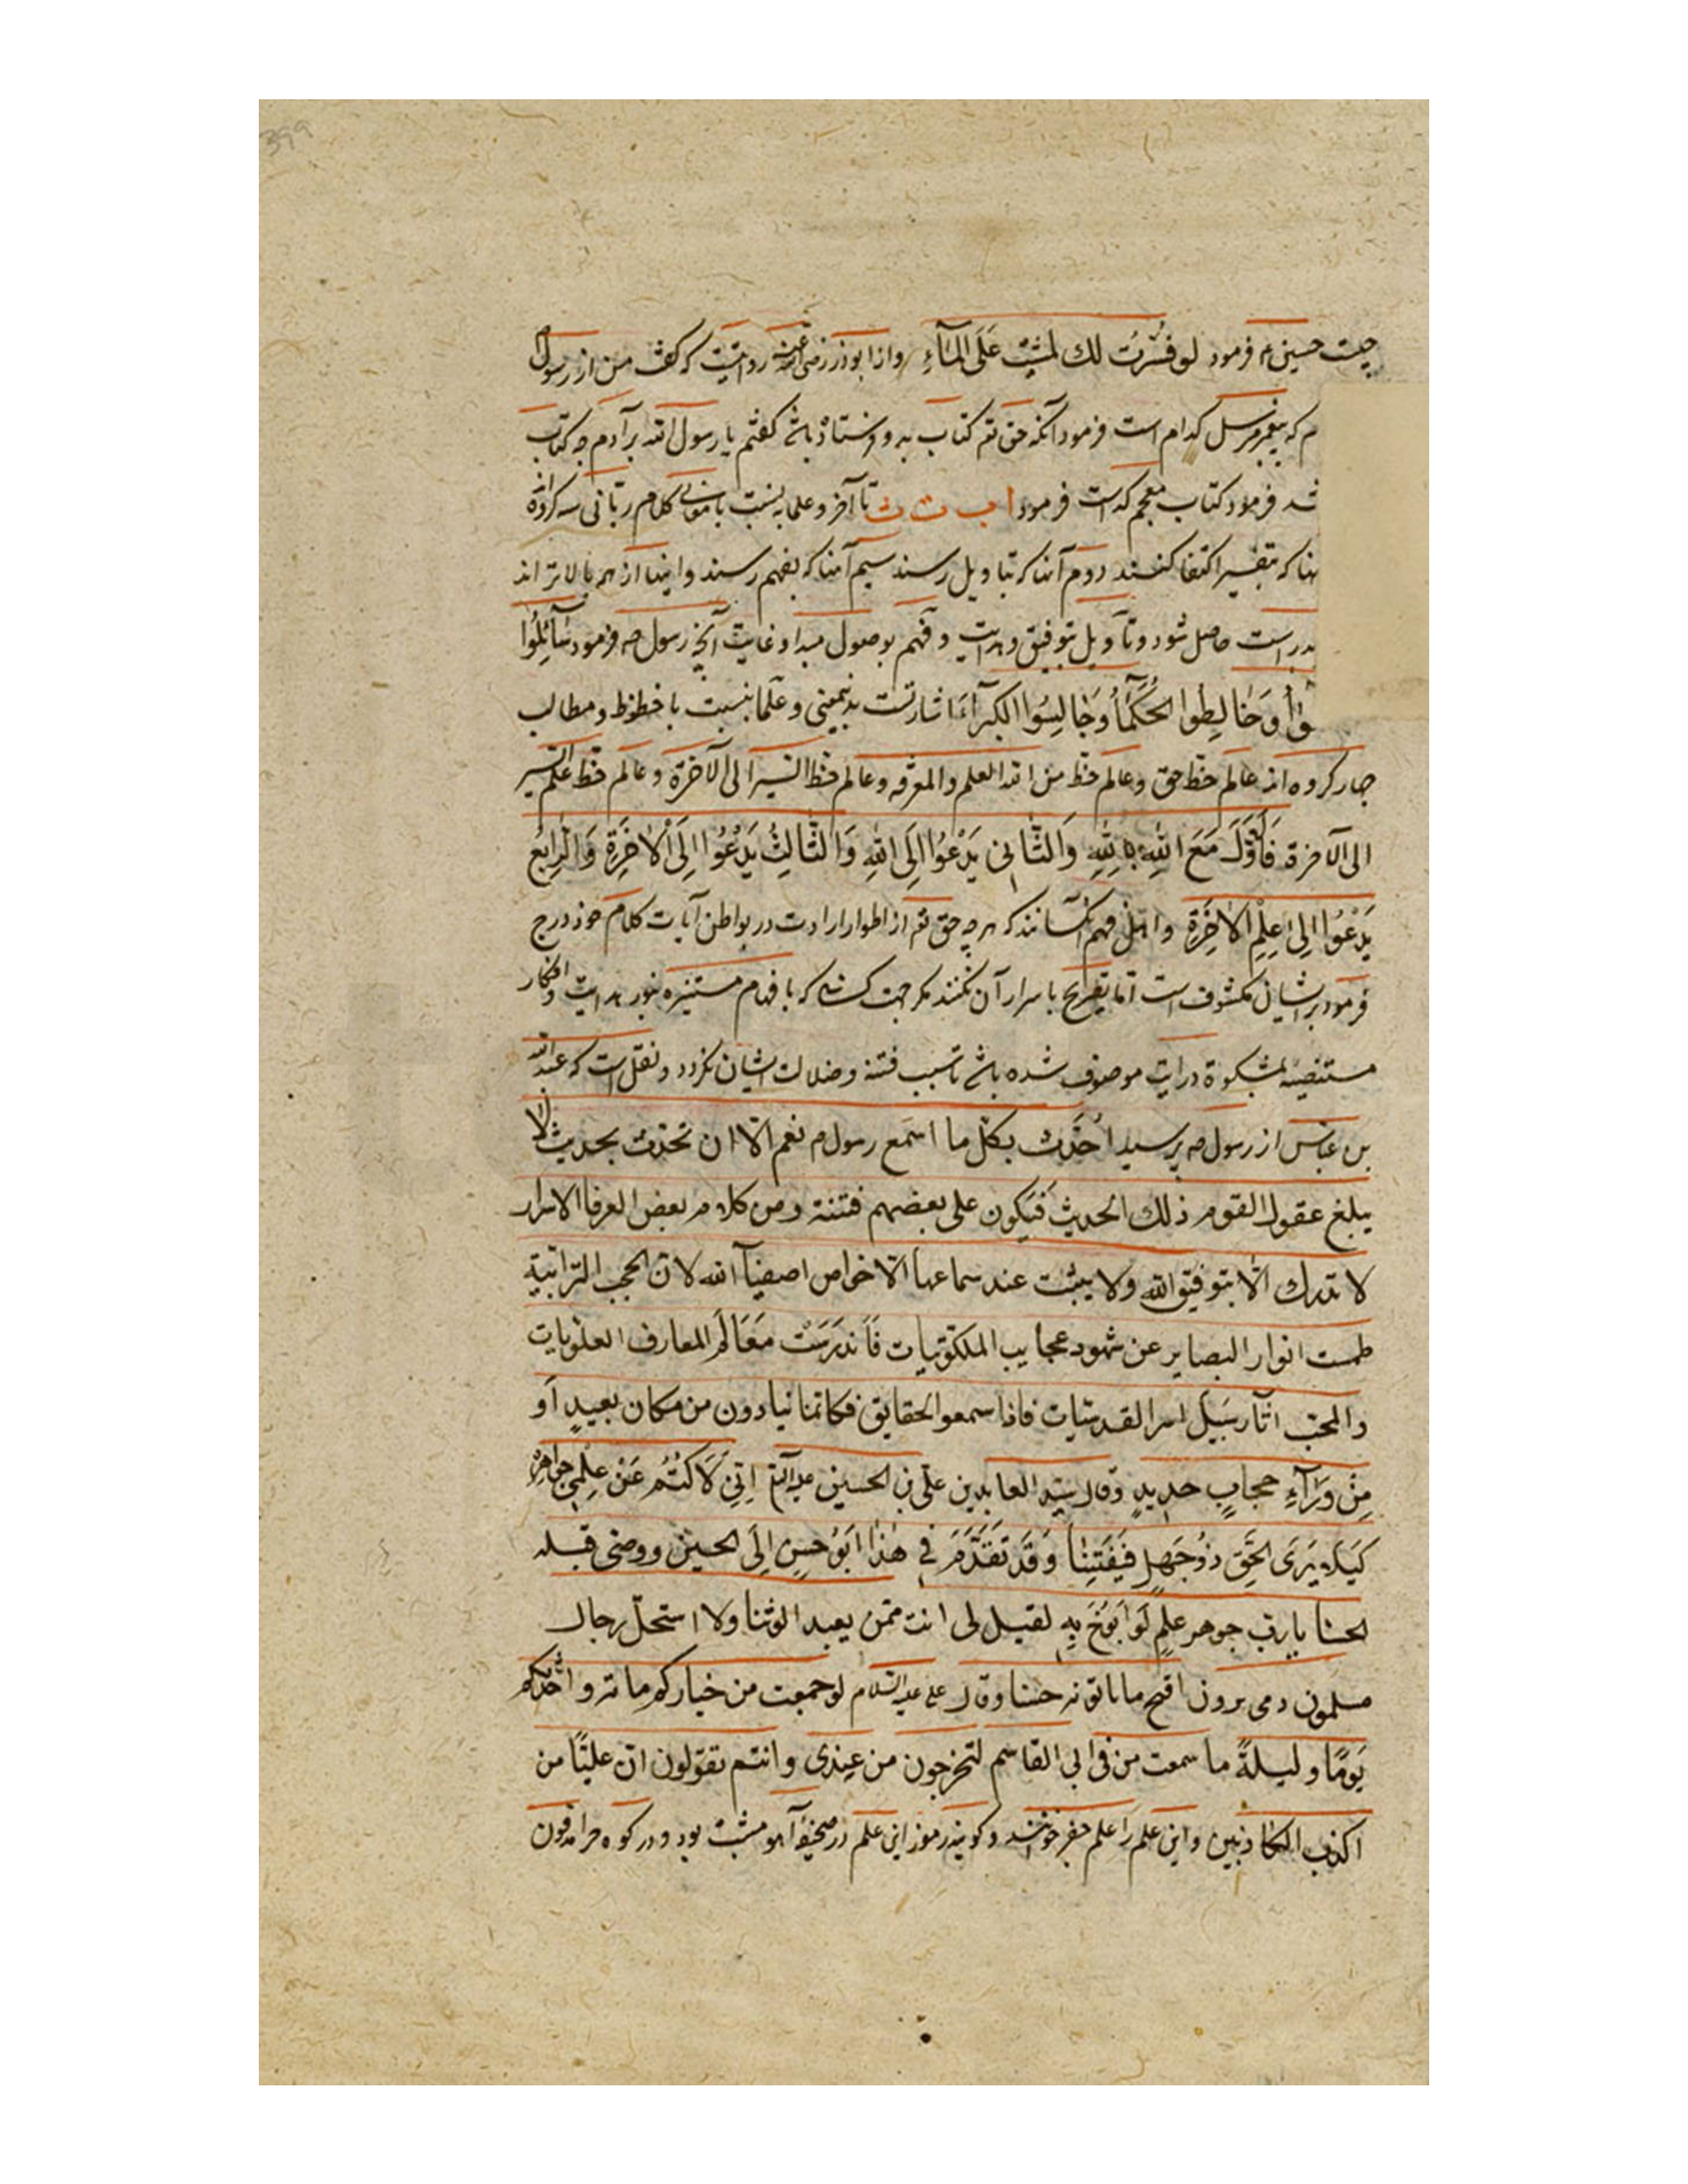 چیست حسین م فرمود لو فسّرتُ لك لمشیت عَلَی المآءِ و از ابوذر رضی الله عنه روایتست که گفت من از رسول
م که پیغمبر مرسل کدام است فرمود آنکه حق تع کتاب بدو فرستاد باشد گفتم یا رسول الله بر آدم چه کتاب
شد فرمود کتاب معجم که است فرمود ا ب ت ث تا آخر و علما به نسبت با معانی کلام ربّانی سه کروه‌اند
نها که بتفسیر اکتفا کنند دوم آنها که بتاویل رسند سیم آنها که بفهم رسند و اینها از همه بالاتراند
بدراست حاصل شود و تاویل بتوفیق و هدایت و فهم بوصول مبدا و غایت آنچه رسول صه فرمود سَآئِلُوا
وَخٰالِطُوا الحُکَمٰآءَ وَجٰالِسُوا الکبرآءَ اشارتست بدینمعنی و علما بنسبت با حظوظ و مطالب
چهار کروه‌اند عالم حظ حق و عالم حظ من الله العلم والمعرفه و عالم حظ السّیر الی الآخرة و عالم حظ علم السّیر
الی الآخرة فَالأوَّلُ مَعَ اللّهِ بِاللّهِ وَالثّٰانی یَدْعُوا اِلَی اللّهِ وَالثّٰالِثُ یَدْعُوا اِلَی الْاٰخِرَةِ وَالرّٰابِعُ
یَدْعُوا اِلی عِلْمِ الاٰخِرَةِ و اهل فهم آنسانند که هر چه حق تع از اطوار ارادت در بواطن آیات کلام خود درج
فرمود بر ایشان مکشوف است اما تصریح باسرار آن نکنند مکر جهت کسانی که بافهام مستنیره بنور هدایت و افکار
مستضیئه بمشکوة درایت موصوف شده باشد تا سبب فتنه و ضلالت ایشان نکردد و نقل است که عبدالله
بن عباس از رسول صه پرسید اُحَدِّث بکلّ ما اسمع رسول م نعم الّا ان تحدّث بحدیث لا
یبلغ عقول القوم ذلك الحدیث فَیَکون علی بعضهم فتنة ومن کلام بعض العرفا الاسرار
لا تدرك الّا بتوفیق الله ولا یثبت عند سماعها الّا خواص اصفیآ الله لانّ الحجب التّرابیة
طمست انوار البصایر عن شهود عجایب الملکوتیات فَاندَرَسَتْ مَعَالَمُ المعارف العلویات
و المحت اثآر سَبیل اسرا القدسیّات فاذا سمعو الحقایق فکاتما نیادون من مکان بعیدٍ اَو
مِنْ وَرَآءِ حجابٍ حدیدٍ وقال سیّد العابدین علی بن الحسین علیه‌السّلم اِنّی لَاَکتُمُ عَنْ عِلْمی جواهِرَهُ
کَیلا یَرَی الحَقَّ ذُوجَهلٍ فَیَفتَتِنٰا وَقَد تَقَدَّمَ فی هٰذا اَبُو حسنٍ اِلَی الحسین ووصی قبله
الحسنا یا ربّ جوهر علمٍ لَو اَبُوحُ بِهِ لقیل لی انت ممّن یعبد الوثنا ولا استحلّ رجال
مسلمون دمی یرون اقبح ما یاتونه حسنا وقال علی علیه السّلام لو جمعت من خیارکم مائه و احدّثکم
یَومًا ولیلةً ما سمعت من فی ابی القاسم لتخرجون من عِندی وانتم تقولون انّ علیًّا من
اکذب الکاذبین و این علم را علم جفر خوانند و کویند رموز این علم در صحیفۀ آهو مثبت بود و در کوه حرا مدفون